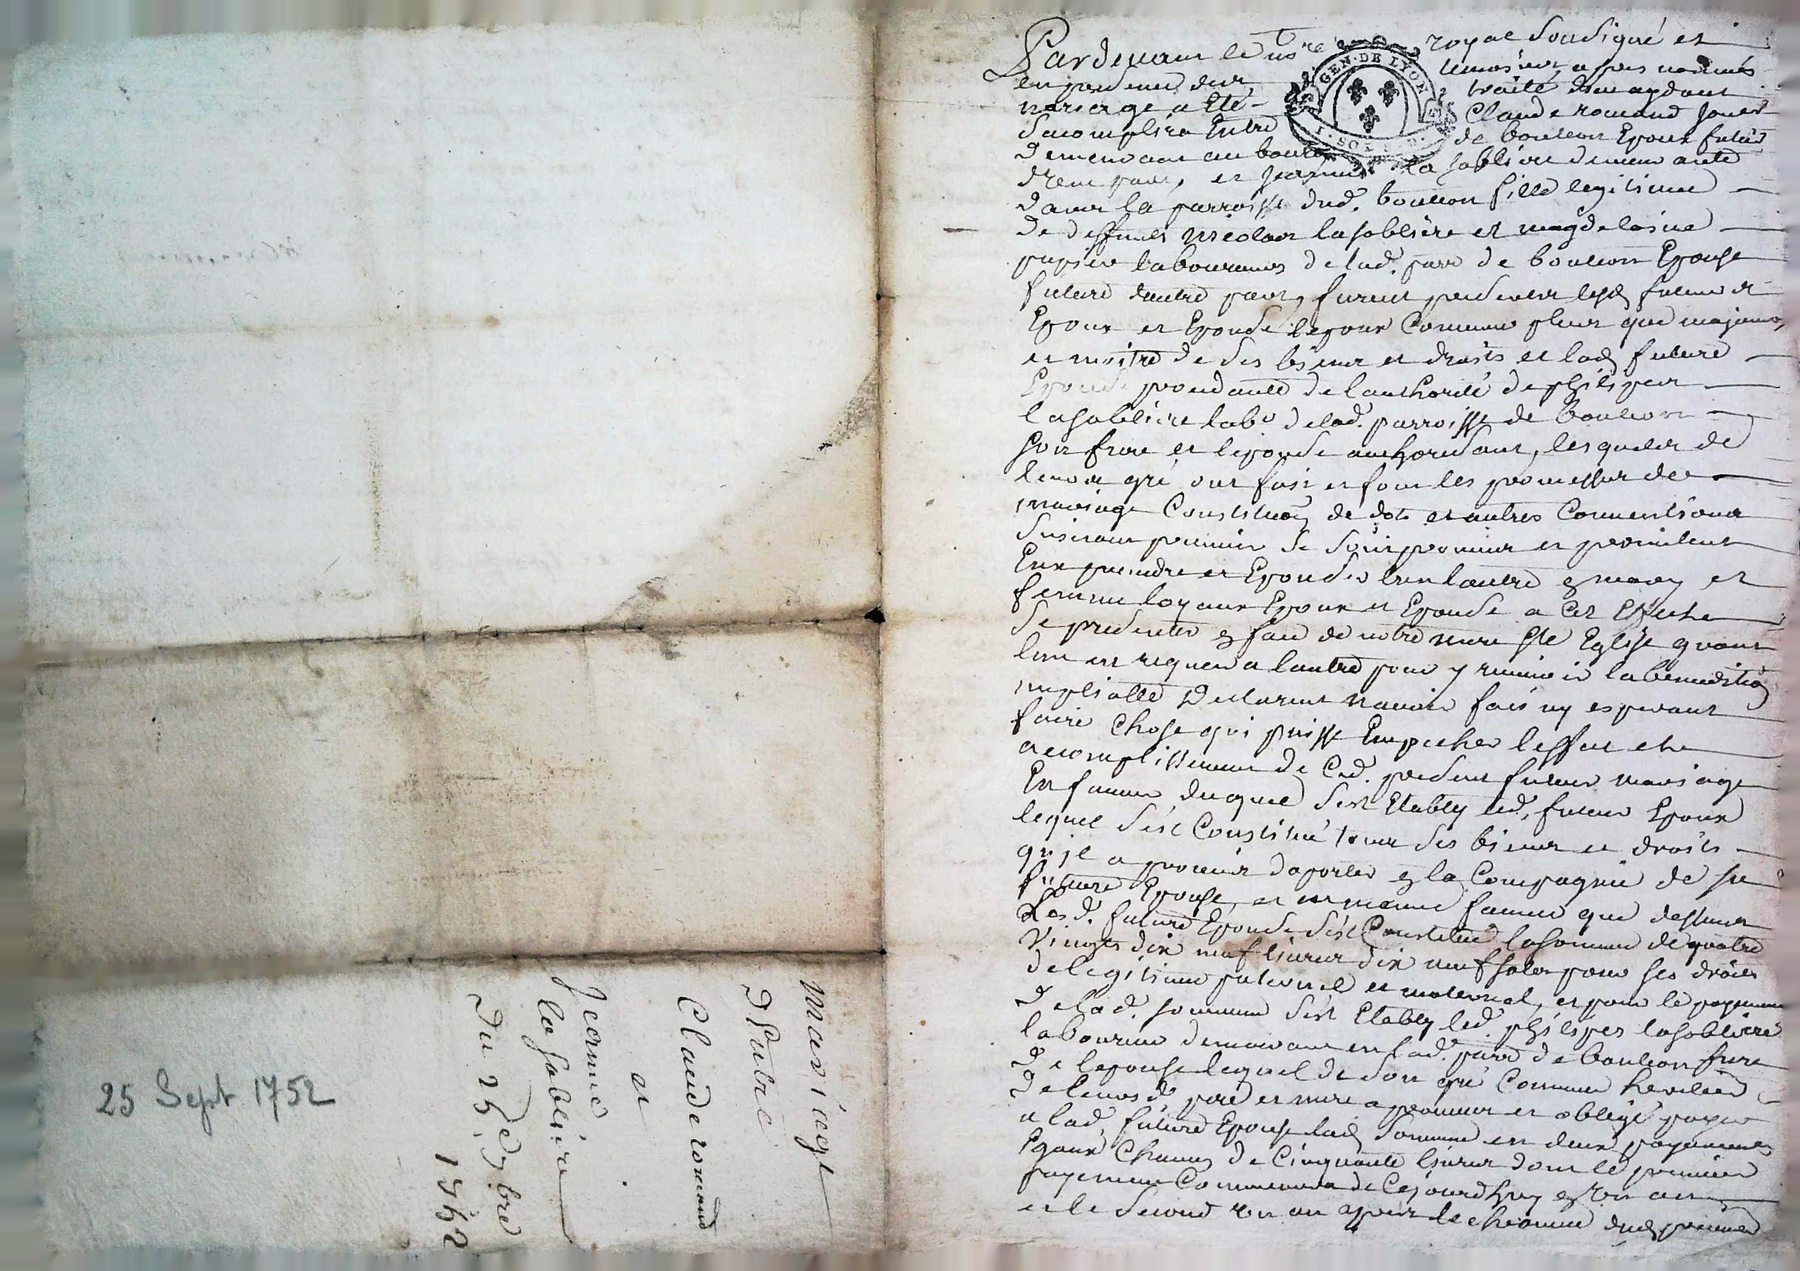 mariage
D'Entre
Claude romand
et
Jeanne
la sabliere
Du 25 7bre
1752
25 Sept 1752
Pardevant le no.re royal soussigné et
en presence des temoins apres nommés
mariage a Eté traité
GEN. DE LYON
Sacomplira Entre Claude romand
demeurant au de bouteon Epoux futur
dune part, et Jeanne la sabliere demeurante
dans la parroisse dud. bouteon fille legitime
de deffunts nicolas lasabliere et magdelaine
laboureurs de lad. parr de bouteon Epouse
future dautre part, furent presents lesd futurs
Epoux et Epouse lepoux Comme plus que majeur,
et maitre de ses biens et droits et lad future
Epouse procedante de l'authorité de philipes
lasabliere labr delad. parroisse de bouteon
son frere et lepouse authorisant, lesquels de
leurs gré ont fait et font les promesses de
mariage Constitution de dots et autres Conventions
suivant premier se sont promis et promettent
Eux prendre et Epouser lun lautre en mary et
femme loyaux Epoux et Epouse a Cet Effect
se presenter en face de notre mere Ste Eglise quant
lun en requera lautre pour y recevoir la benediction
nuptialle Declarent navoir fait ny esperant
faire chose qui puisse Empecher leffet et
acomplissement de Ced. present futur mariage
En faveur duquel sest Etably led, futur Epoux
lequel sest Constitué tous ses biens et droits
quil a promis daporter en la Compagnie de sa
future Epouse, et en meme faveur que dessus
lad. future Epouse sest Constitué la somme de quatre
vingts dix neuf livres dix neuf sols pour ses droits
de legitime paternel et maternel, et pour le payement
de lad. somme sest Etably led. philipes lasabliere
laboureur demeurant en lad. parr de bouteon frere
de lepouse lequel de son gré Comme heritier
de leursd. pere et mere a promis et obligé payer
a lad, future Epouse lad somme en deux payements
Egaux Chacun de Cinquante livres dont le premier
payement Commencera de Cejourdhuy en un an
et le second un an apres le dud premier